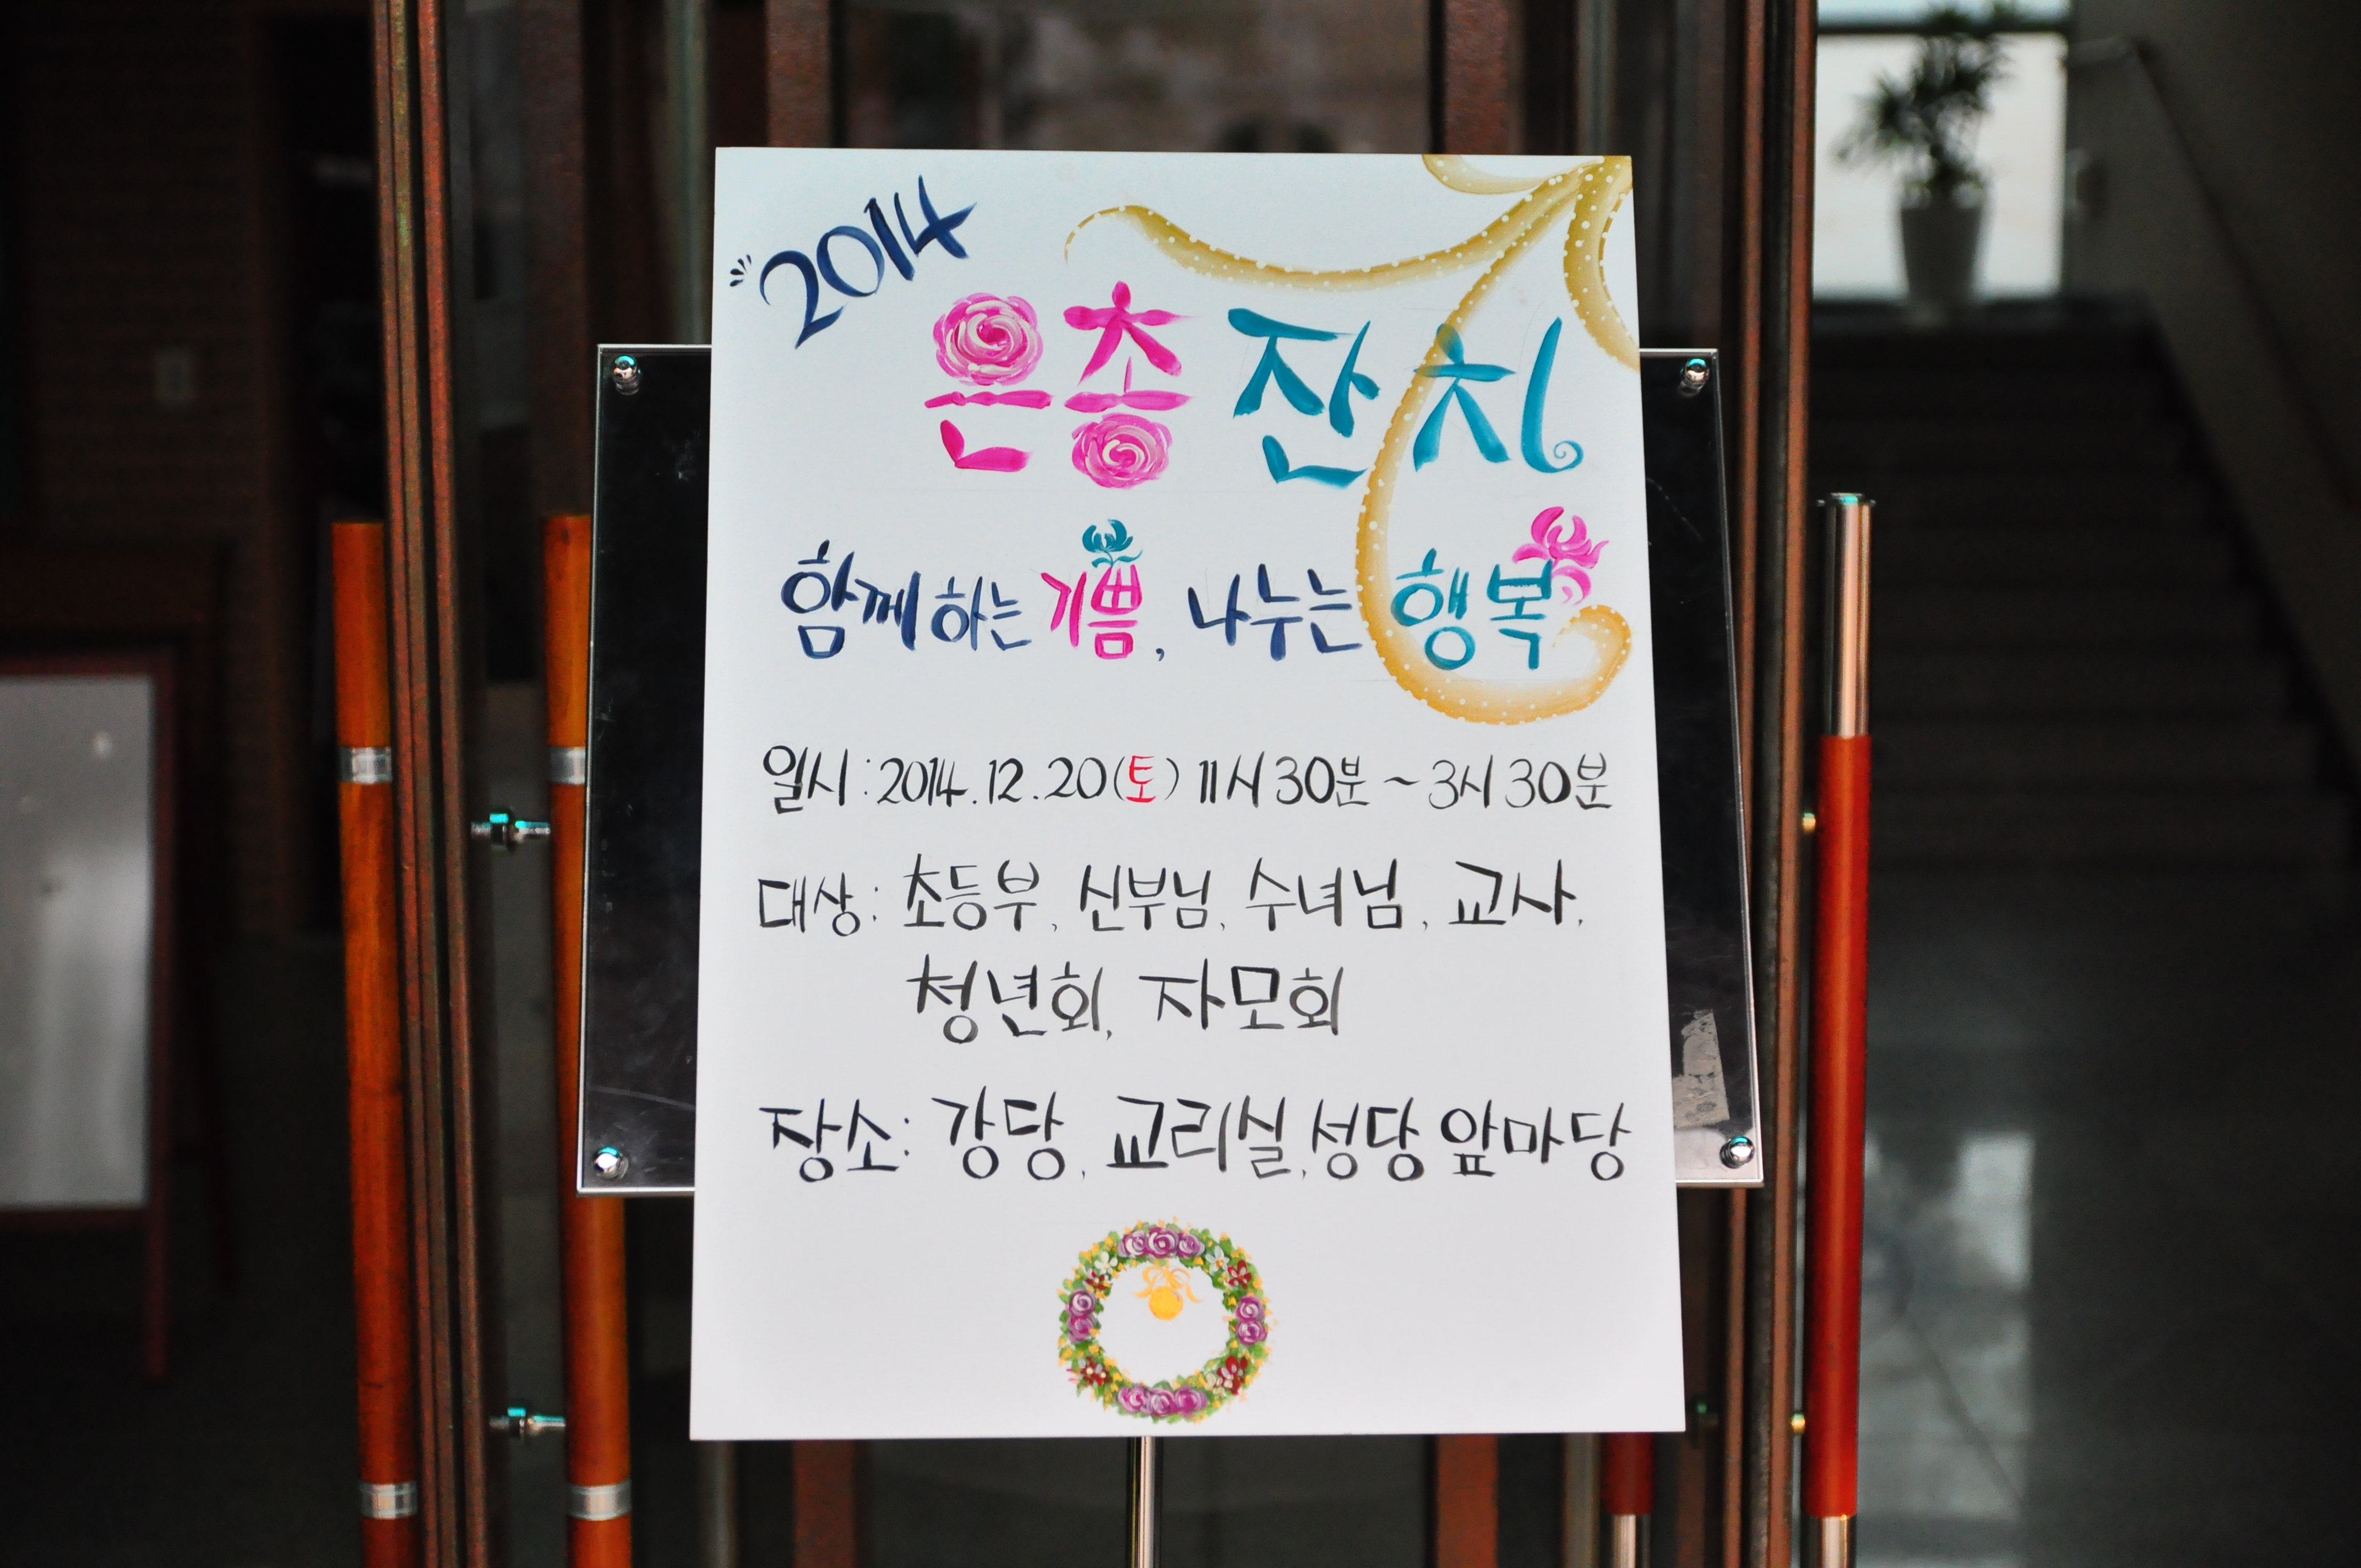 2014
은총 잔치
함께 하는 기쁨, 나누는 행복
일시 : 2014. 12. 20(토) 11시 30분 ~ 3시 30분
대상 : 초등부, 신부님, 수녀님, 교사,
청년회, 자모회
장소 : 강당, 교리실, 성당 앞마당